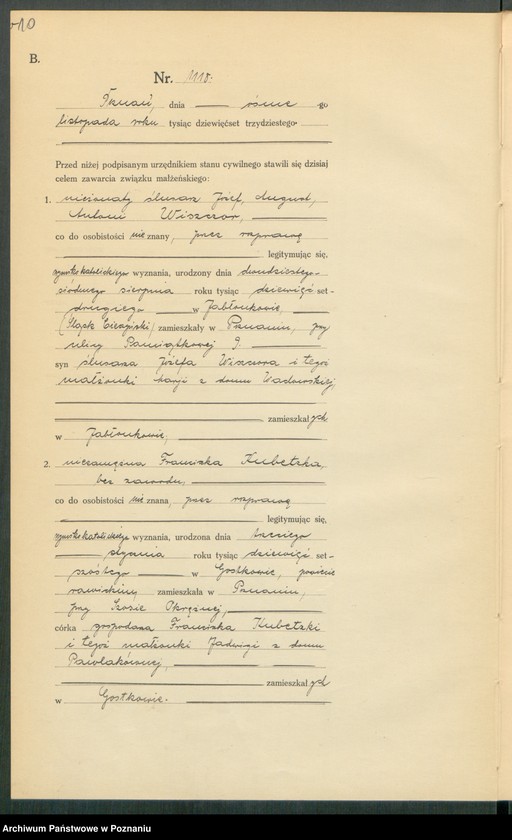 10
B.
Nr. 1118.
Poznań, dnia ósme go
listopada roku tysiąc dziewięćset trzydziestego
Przed niżej podpisanym urzędnikiem stanu cywilnego stawili się dzisiaj
celem zawarcia związku małżeńskiego:
1. nieżonaty ślusarz Józef, August,
Antoni Wiszczor,
co do osobistości nie znany, przez rozprawę
legitymując się,
rzymskokatolickiego wyznania, urodzony dnia dwudziestego
siódmego sierpnia roku tysiąc dziewięć set-
drugiego w Jabłonkowie,
(Śląsk Cieszyński) zamieszkały w Poznaniu, przy
ulicy Pamiątkowej 9.
syn ślusarza Józefa Wiszczora i tegoż
małżonki Marji z domu Wadowskiej,
zamieszkałych
w Jabłonkowie,
2. niezamężna Franciszka Kubetzka,
bez zawodu,
co do osobistości nie znana, przez rozprawę
legitymując się,
rzymskokatolickiego wyznania, urodzona dnia trzeciego
stycznia roku tysiąc dziewięć set-
szóstego w Gostkowie, powiecie
rawickim, zamieszkała w Poznaniu,
przy Szosie Okrężnej,
córka gospodarza Franciszka Kubetzki
i tegoż małżonki Jadwigi z domu
Pawlakównej,
zamieszkałych
w Gostkowie.
Archiwum Państwowe w Poznaniu